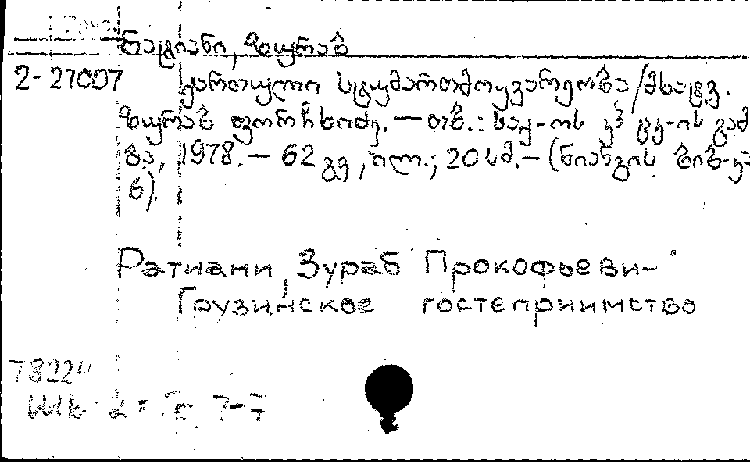 რატიანი, ზურაბ
2-27007 ქართული სტუმართმოყვარეობა/მხატვ.
ზურაბ ფორჩხიძე. — თბ.: საქ-ოს კპ ცკ-ის გამ
ბა, 1978. — 62 გვ., ილ.; 20 სმ. — (ნიანგის ბიბ-კა
6).
Ратиани, Зураб Прокофьеви-
Грузинское гостеприимство
7-7